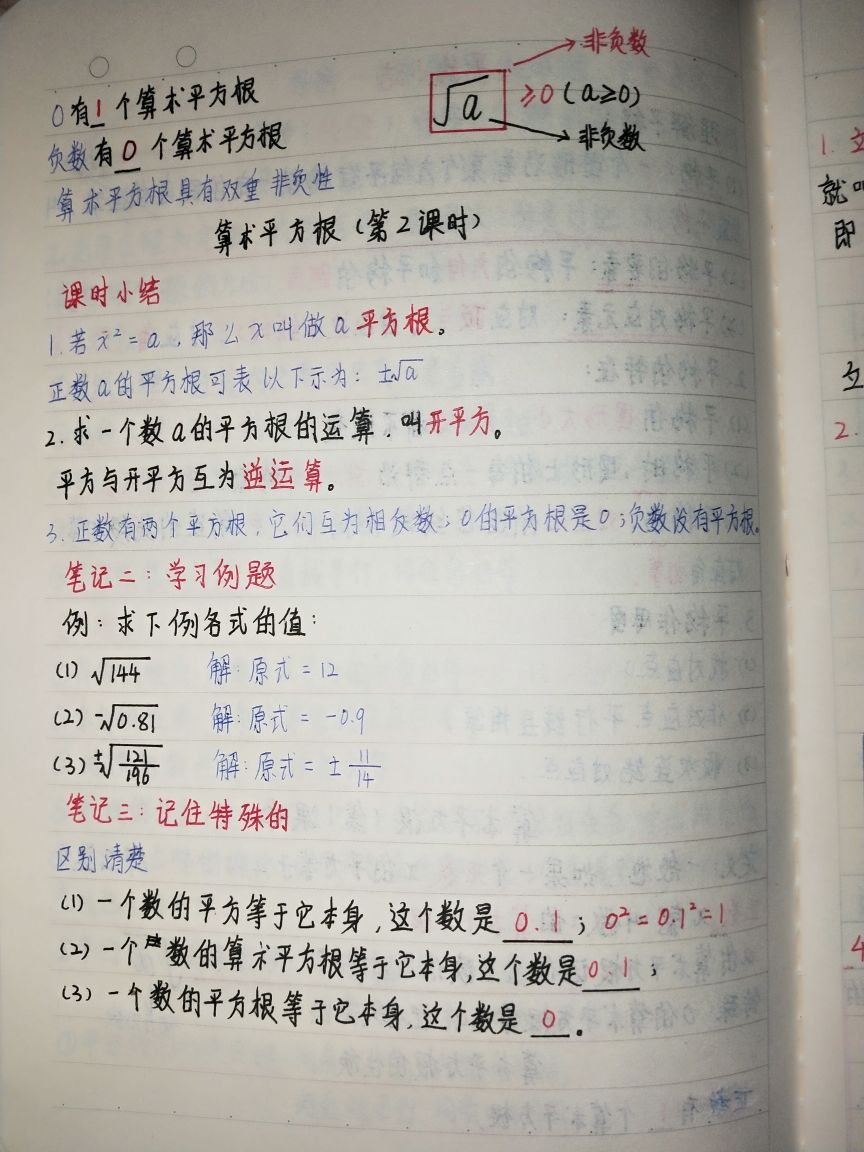 非负数
0有1个算术平方根
√a ≥0(a≥0)
负数有0个算术平方根
非负数
算术平方根具有双重非负性
算术平方根(第2课时)
课时小结
1.若x²=a,那么x叫做a平方根。
正数a的平方根可表以下示为:±√a
2.求一个数a的平方根的运算,叫开平方。
平方与开平方互为逆运算。
3.正数有两个平方根,它们互为相反数;0的平方根是0;负数没有平方根。
笔记二:学习例题
例:求下例各式的值:
(1)√144 解:原式=12
(2)-√0.81 解:原式=-0.9
(3)±√121/196 解:原式=±11/14
笔记三:记住特殊的
区别清楚
(1)一个数的平方等于它本身,这个数是0.1;0²=0.1²=1
(2)一个数的算术平方根等于它本身,这个数是0.1;
(3)一个数的平方根等于它本身,这个数是0。
1.
就叫
即
2.
4